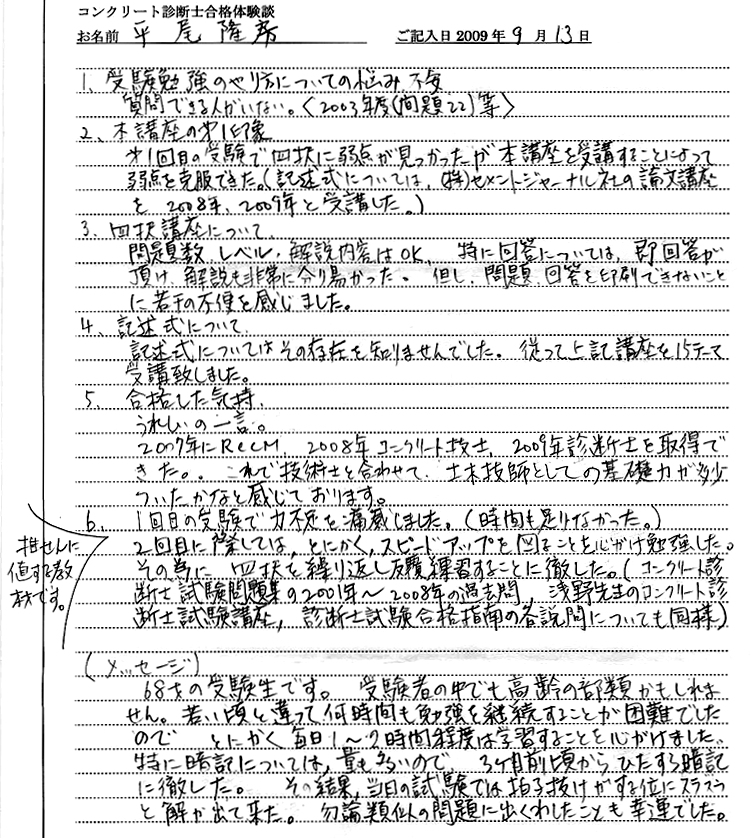 コンクリート診断士合格体験談
お名前 平尾隆 ご記入日2009年9月13日
1、受験勉強のやり方についての悩み、不安
質問できる人がいない。〈2003年度(問題22)等〉
2、本講座の第1印象
第1回目の受験で四択に弱点が見つかったが本講座を受講することによって
弱点を克服できた。(記述式については、(株)セメントジャーナル社の論文講座
を 2008年、2009年と受講した。)
3、四択講座について
問題数、レベル、解説内容はOK、特に回答については、即回答が
頂け、解説も非常に分り易かった。但し、問題、回答を印刷できないこと
に若干の不便を感じました。
4、記述式について
記述式についてはその存在を知りませんでした。従って上記講座を15テーマ
受講致しました。
5、合格した気持、
うれしいの一言。
2007年にRCCM、2008年コンクリート技士、2009年診断士を取得で
きた。これで技術士と合わせて、土木技師としての基礎力が多少
ついたかなと感じております。
6、1回目の受験で力不足を痛感しました。(時間も足りなかった。)
2回目に際しては、とにかく、スピードアップを図ることを心がけ勉強した。
その為に、四択を繰り返し反覆練習することに徹した。(コンクリート診
断士試験問題集の2001年〜2008年の過去問、浅野先生のコンクリート診
断士試験講座、診断士試験合格指南の各設問についても同様)
推せんに
値する教
材です。
(メッセージ)
68才の受験生です。受験者の中でも高齢の部類かもしれま
せん。若い頃と違って何時間も勉強を継続することが困難でした
ので とにかく毎日1〜2時間程度は学習することを心がけました。
特に暗記については、量も多いので、3ヶ月前頃からひたすら暗記
に徹した。その結果、当日の試験では拍子抜けがする位にスラスラ
と解が出て来た。勿論類似の問題に出くわしたことも幸運でした。